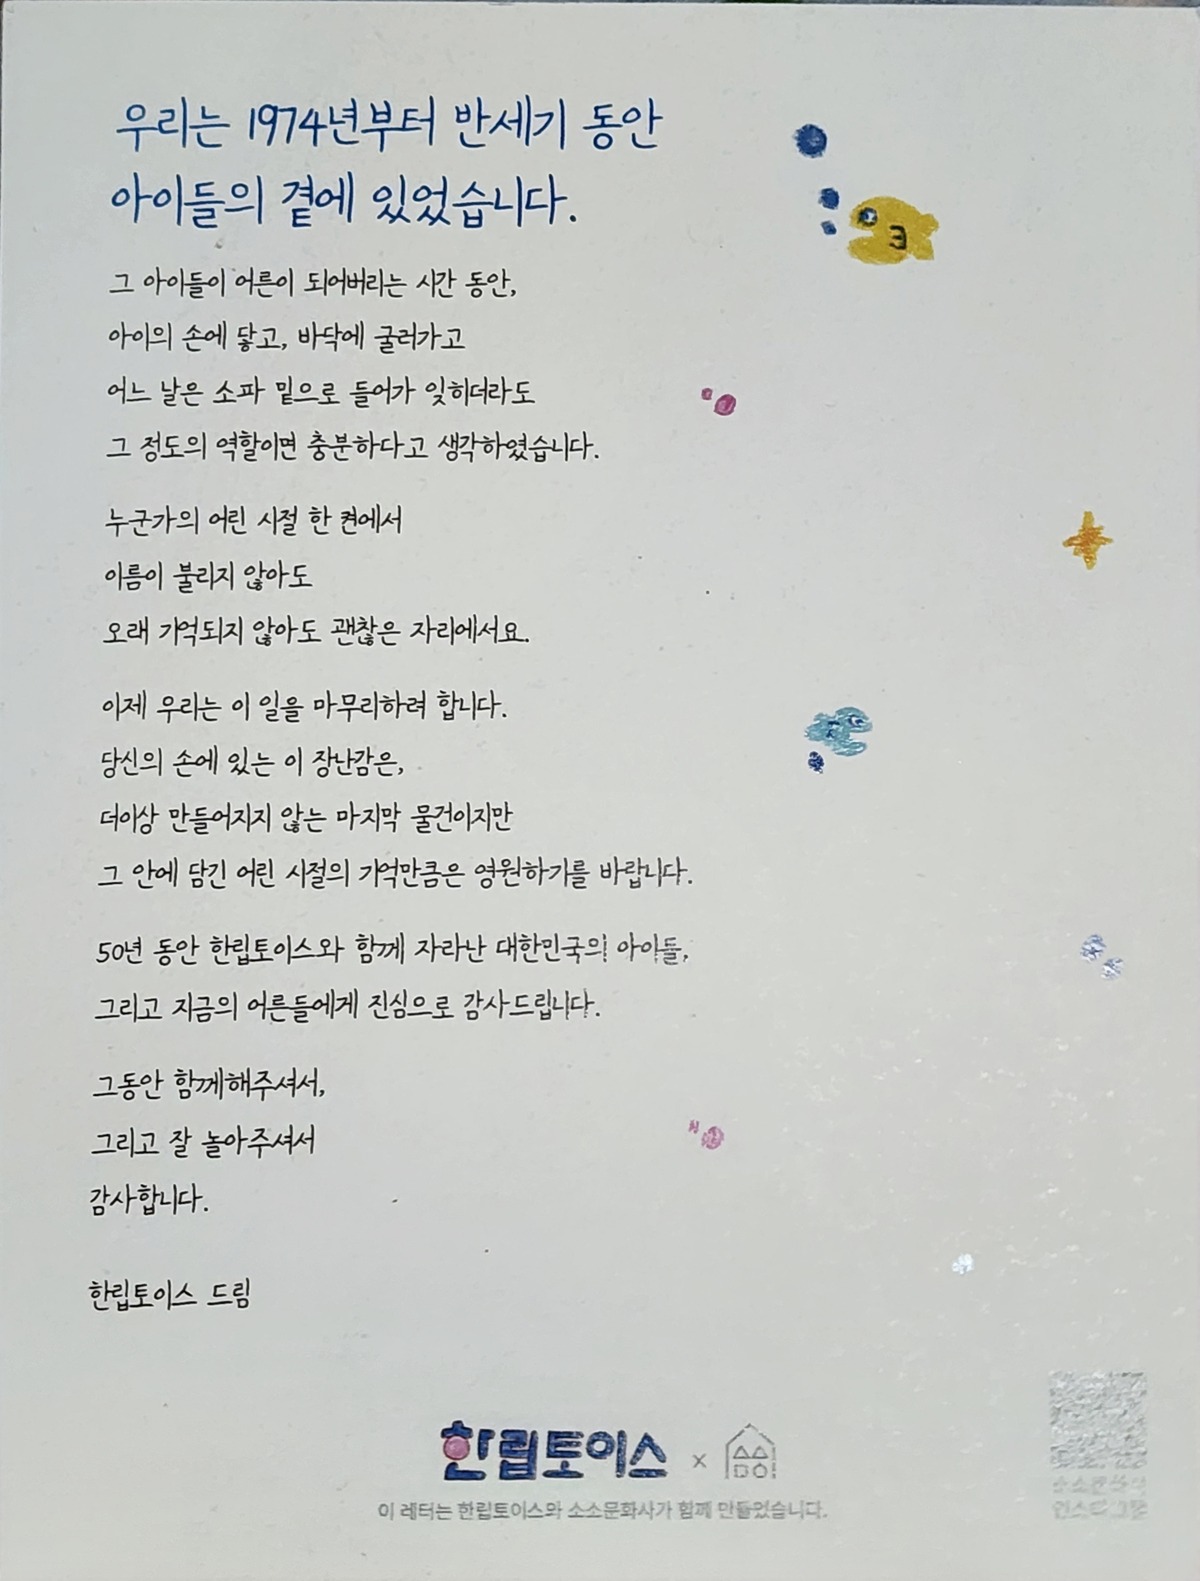 우리는 1974년부터 반세기 동안
아이들의 곁에 있었습니다.
그 아이들이 어른이 되어버리는 시간 동안,
아이의 손에 닿고, 바닥에 굴러가고
어느 날은 소파 밑으로 들어가 잊히더라도
그 정도의 역할이면 충분하다고 생각하였습니다.
누군가의 어린 시절 한 켠에서
이름이 불리지 않아도
오래 기억되지 않아도 괜찮은 자리에서요.
이제 우리는 이 일을 마무리하려 합니다.
당신의 손에 있는 이 장난감은,
더이상 만들어지지 않는 마지막 물건이지만
그 안에 담긴 어린 시절의 기억만큼은 영원하기를 바랍니다.
50년 동안 한립토이스와 함께 자라난 대한민국의 아이들,
그리고 지금의 어른들에게 진심으로 감사드립니다.
그동안 함께해주셔서,
그리고 잘 놀아주셔서
감사합니다.
한립토이스 드림
한립토이스 x
이 레터는 한립토이스와 소소문화사가 함께 만들었습니다.
소소문화사
인스타그램